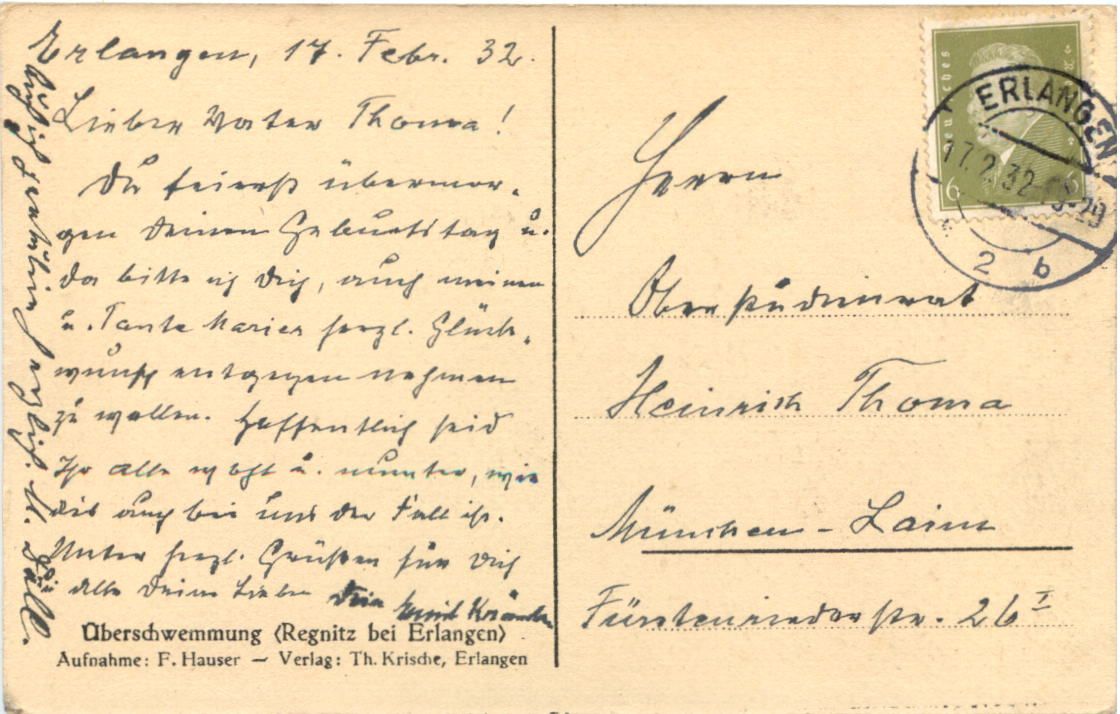 Erlangen, 17. Febr. 32.
Lieber Vater Thoma!
Du feierst übermor-
gen Deinen Geburtstag u.
da bitte ich Dich, auch meinen
u. Tante Maries herzl. Glück-
wunsch entgegen nehmen
zu wollen. Hoffentlich seid
Ihr alle wohl u. munter, wie
dies auch bei uns der Fall ist.
Unter herzl. Grüßen für Dich
u. alle Deine Lieben Dein Emil
herzlich
Überschwemmung (Regnitz bei Erlangen)
Aufnahme: F. Hauser — Verlag: Th. Krische, Erlangen
Herrn
Oberstudienrat
Heinrich Thoma
München-Laim
Fürstenriederstr. 26 I
ERLANGEN
17.2.32
2 b
6 6